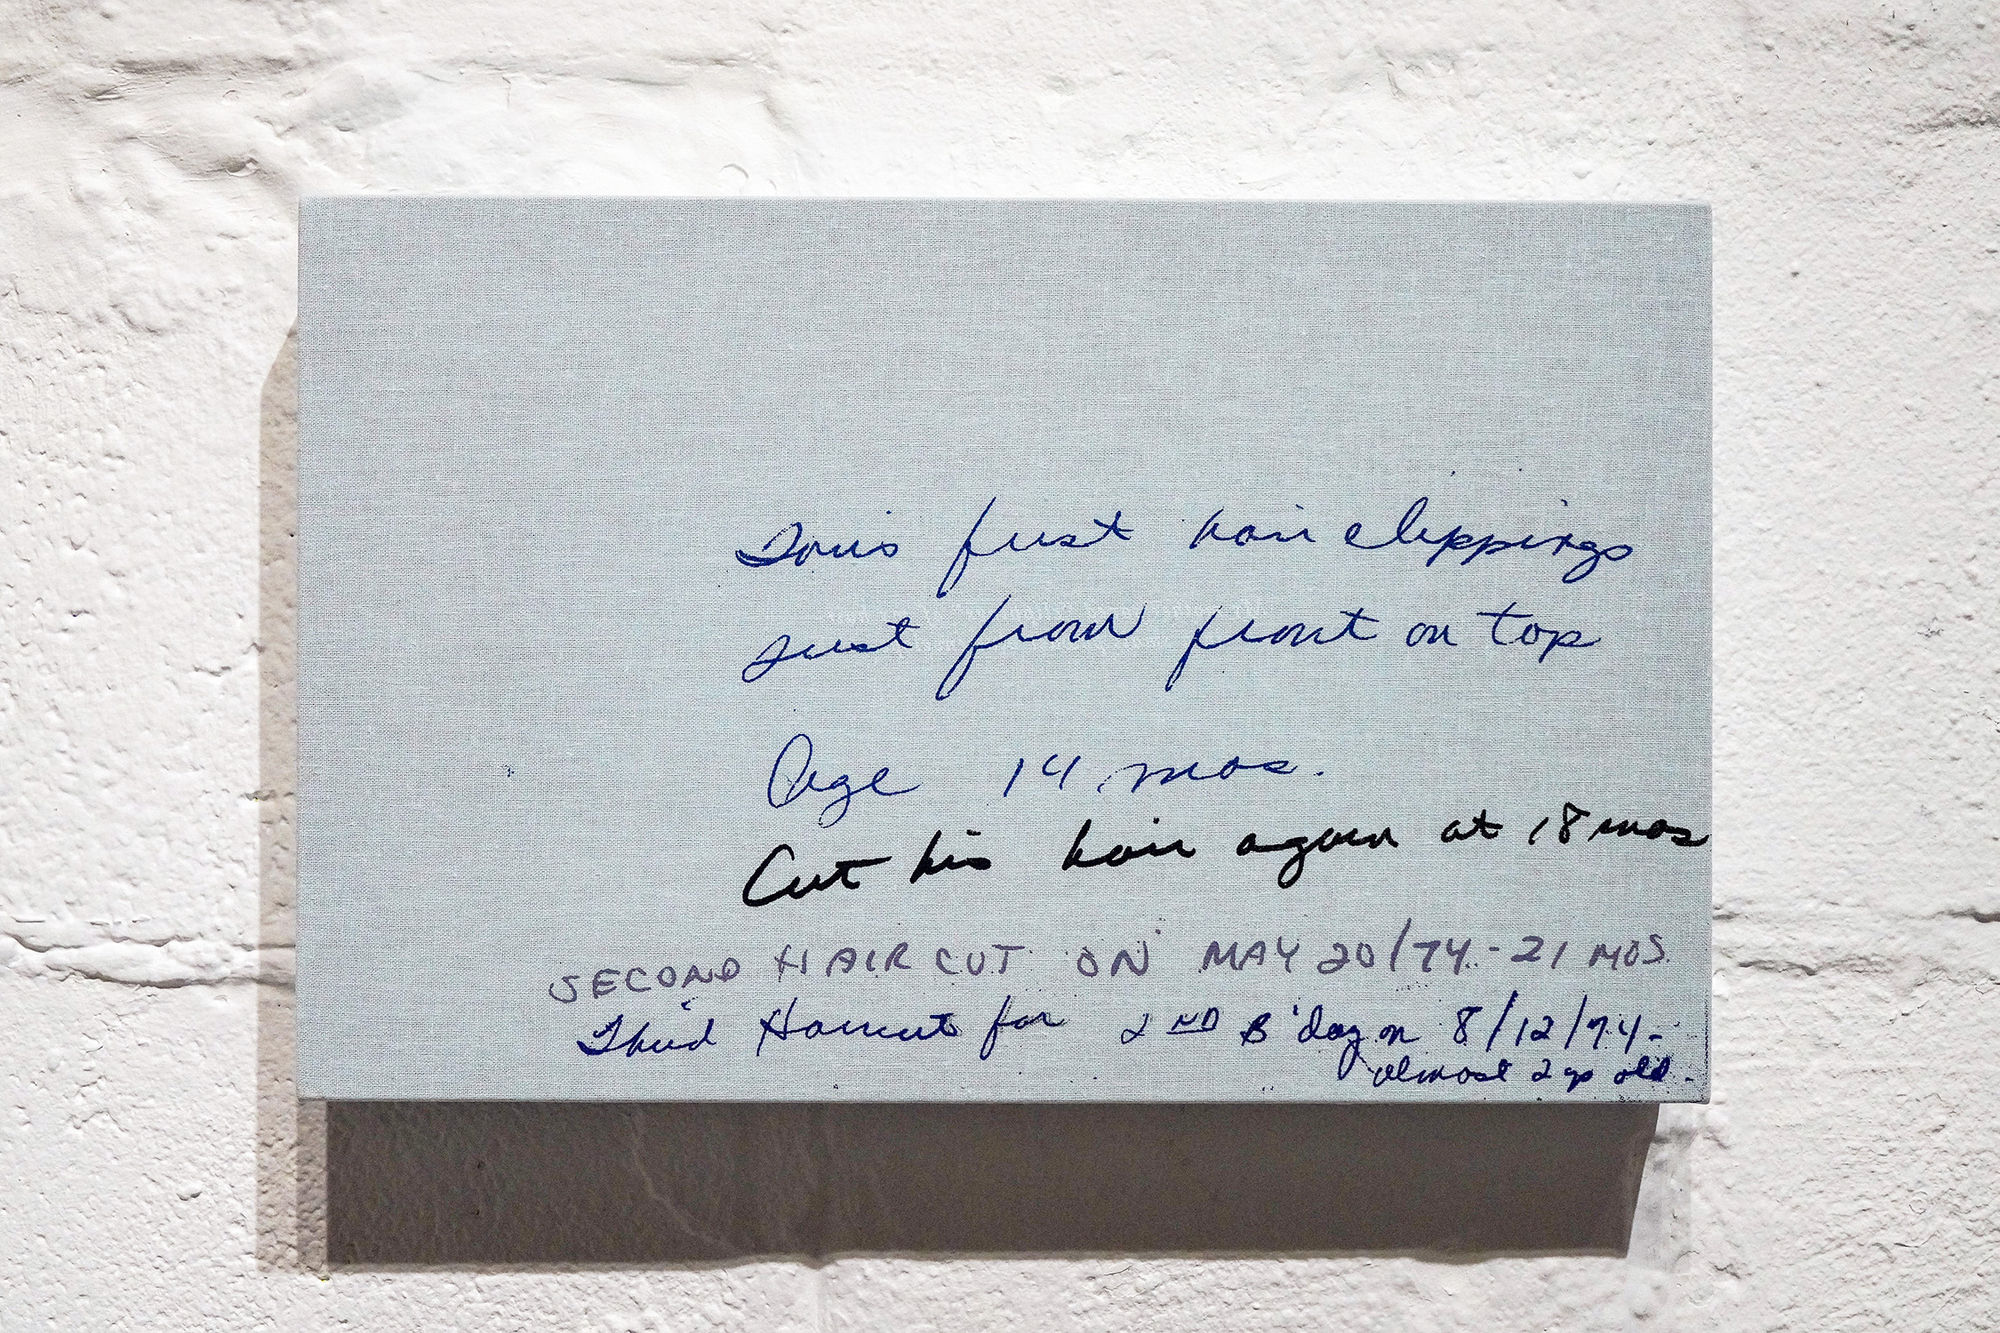 first hair clippings
just from front on top
Age 14 mos.
Cut his hair again at 18 mos
SECOND HAIR CUT ON MAY 20/74 - 21 MOS.
Third Haircut for 2ND B'day on 8/12/74 -
almost 2 yr old.